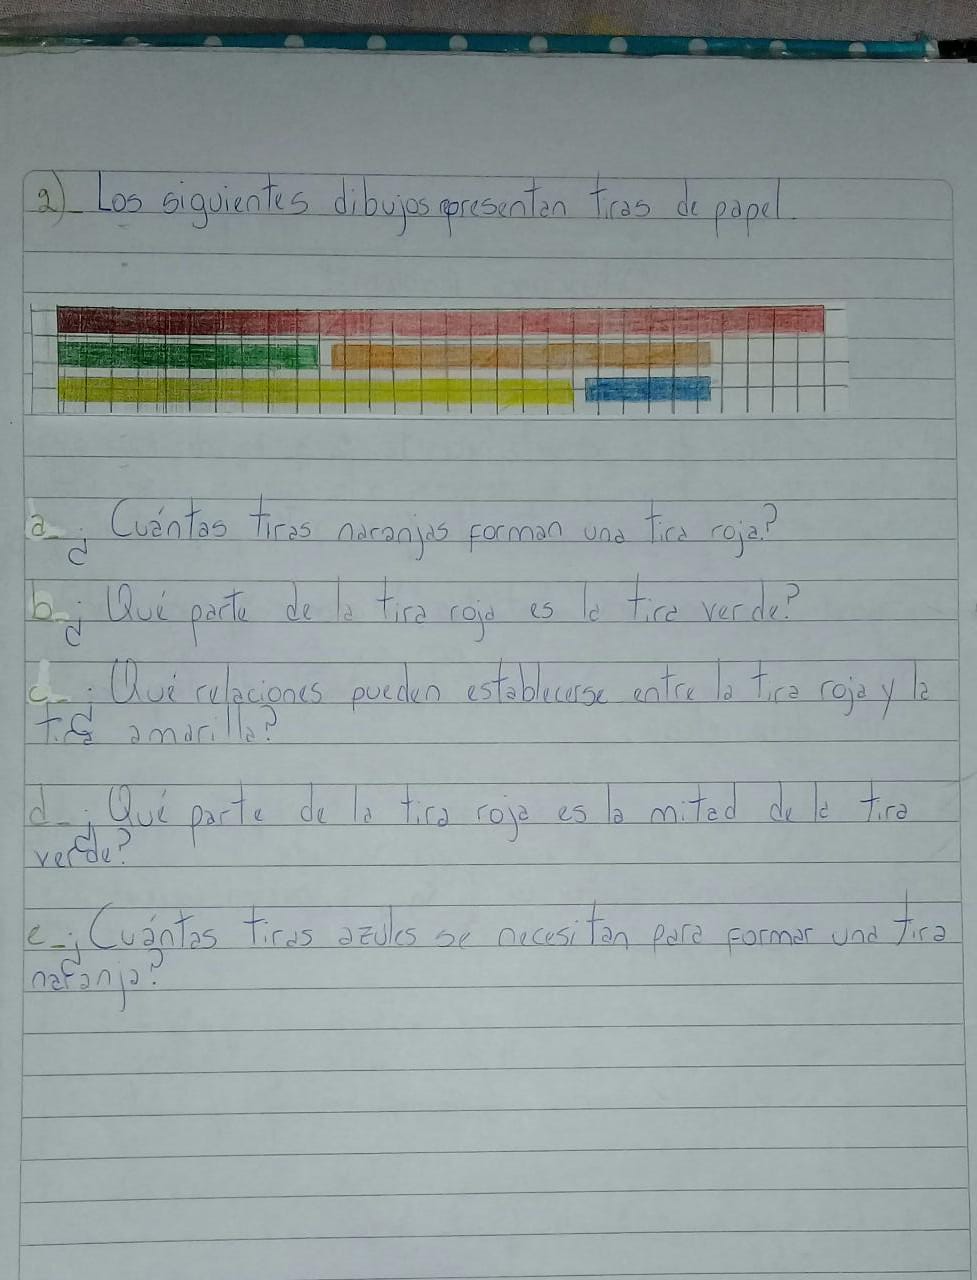 2)_ Los siguientes dibujos representan tiras de papel.
a_ ¿Cuántas tiras naranjas forman una tira roja?
b_ ¿Qué parte de la tira roja es la tira verde?
c_ ¿Qué relaciones pueden establecerse entre la tira roja y la
tira amarilla?
d_ ¿Qué parte de la tira roja es la mitad de la tira
verde?
e_ ¿Cuántas tiras azules se necesitan para formar una tira
naranja?